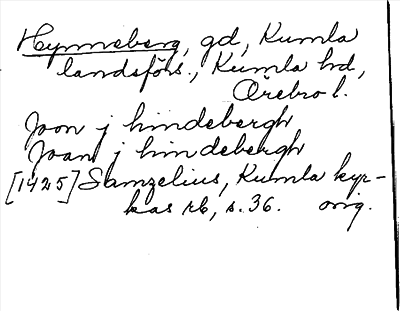 Hynneberg, gd, Kumla
landsförs., Kumla hd,
Örebro l.
Joon j hindebergh
Joan j hindebergh
[1425] Samzelius, Kumla kyr-
kas rb, s. 36. orig.